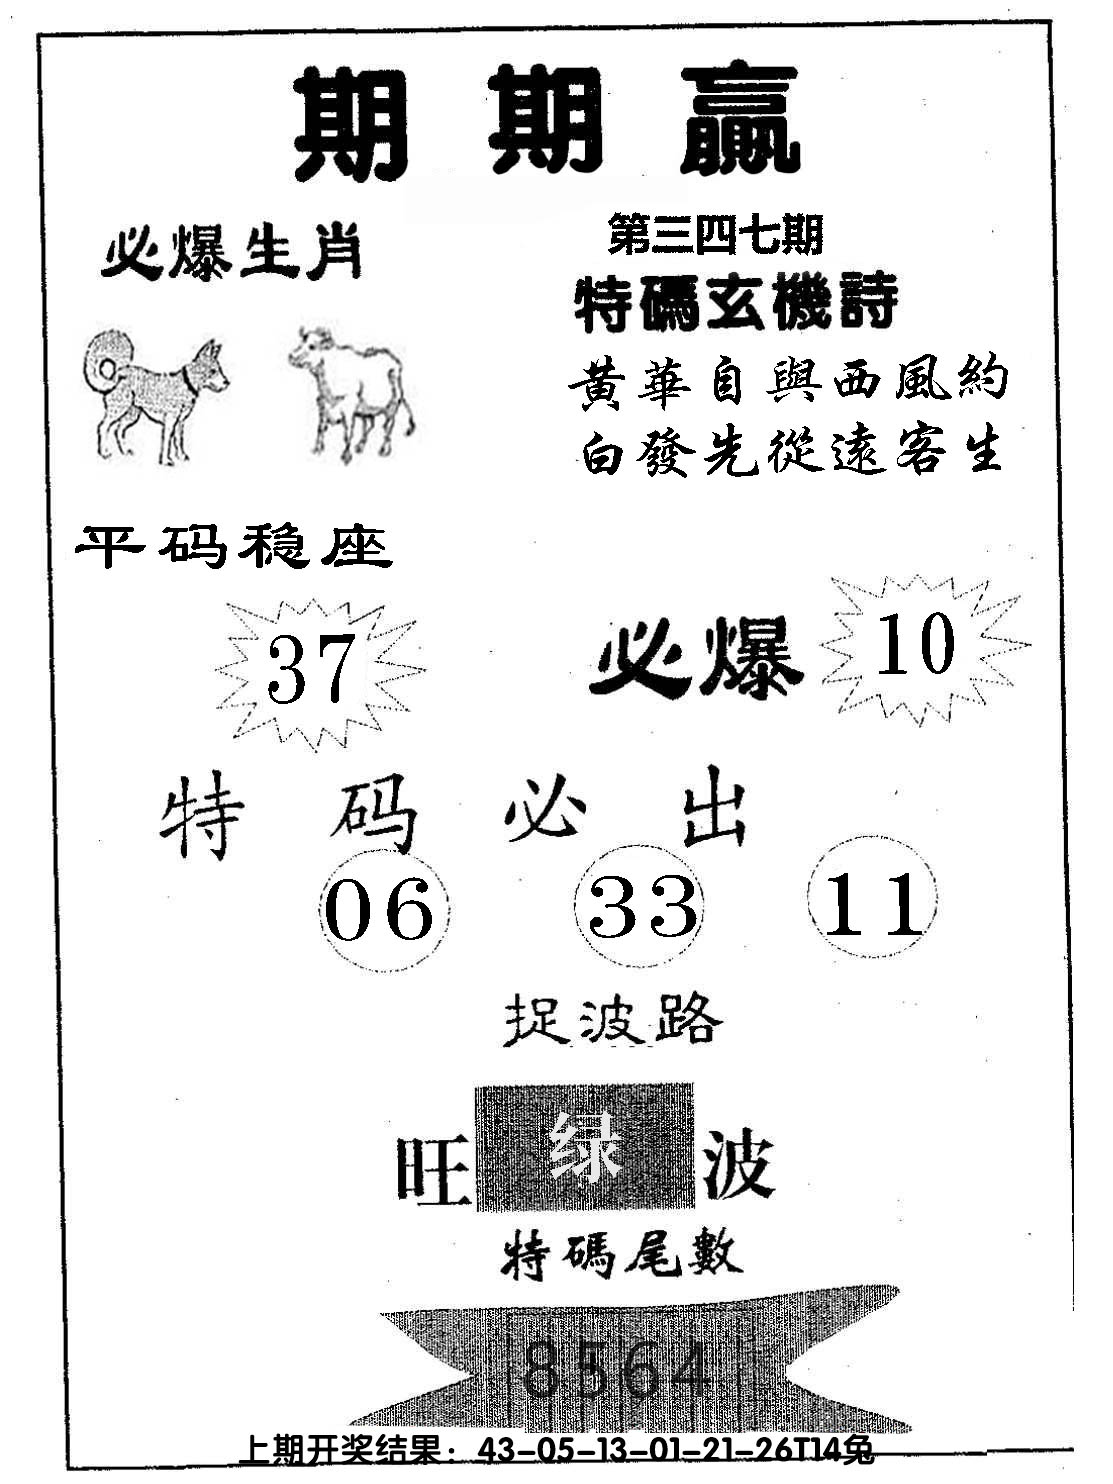 期期贏
必爆生肖
第三四七期
特碼玄機詩
黃華自與西風約
白發先從遠客生
平码稳座
37
必爆
10
特码必出
06 33 11
捉波路
旺 绿 波
特碼尾數
8564
上期开奖结果：43-05-13-01-21-26T14兔